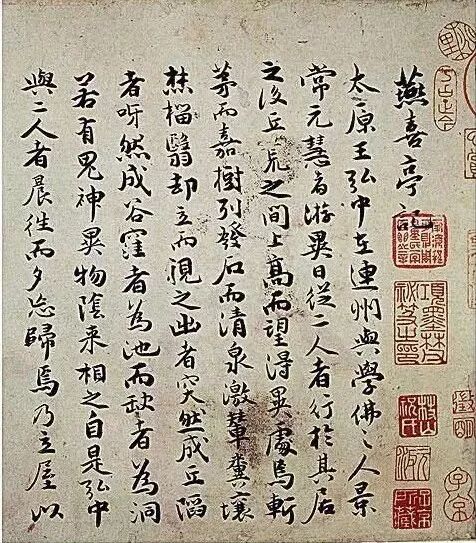 燕喜亭記
太原王弘中在連州與學佛〻人景
常元慧者游異日從二人者行於其居
之後丘荒之間上高而望得異處焉斬
茅而嘉樹列發石而清泉激輦糞壤
焚椔翳却立而視之出者突然成丘陷
者呀然成谷窪者為池而缺者為洞
若有鬼神異物陰来相之自是弘中
與二人者晨往而夕忘歸焉乃立屋以
項墨林父祕笈之印
子京